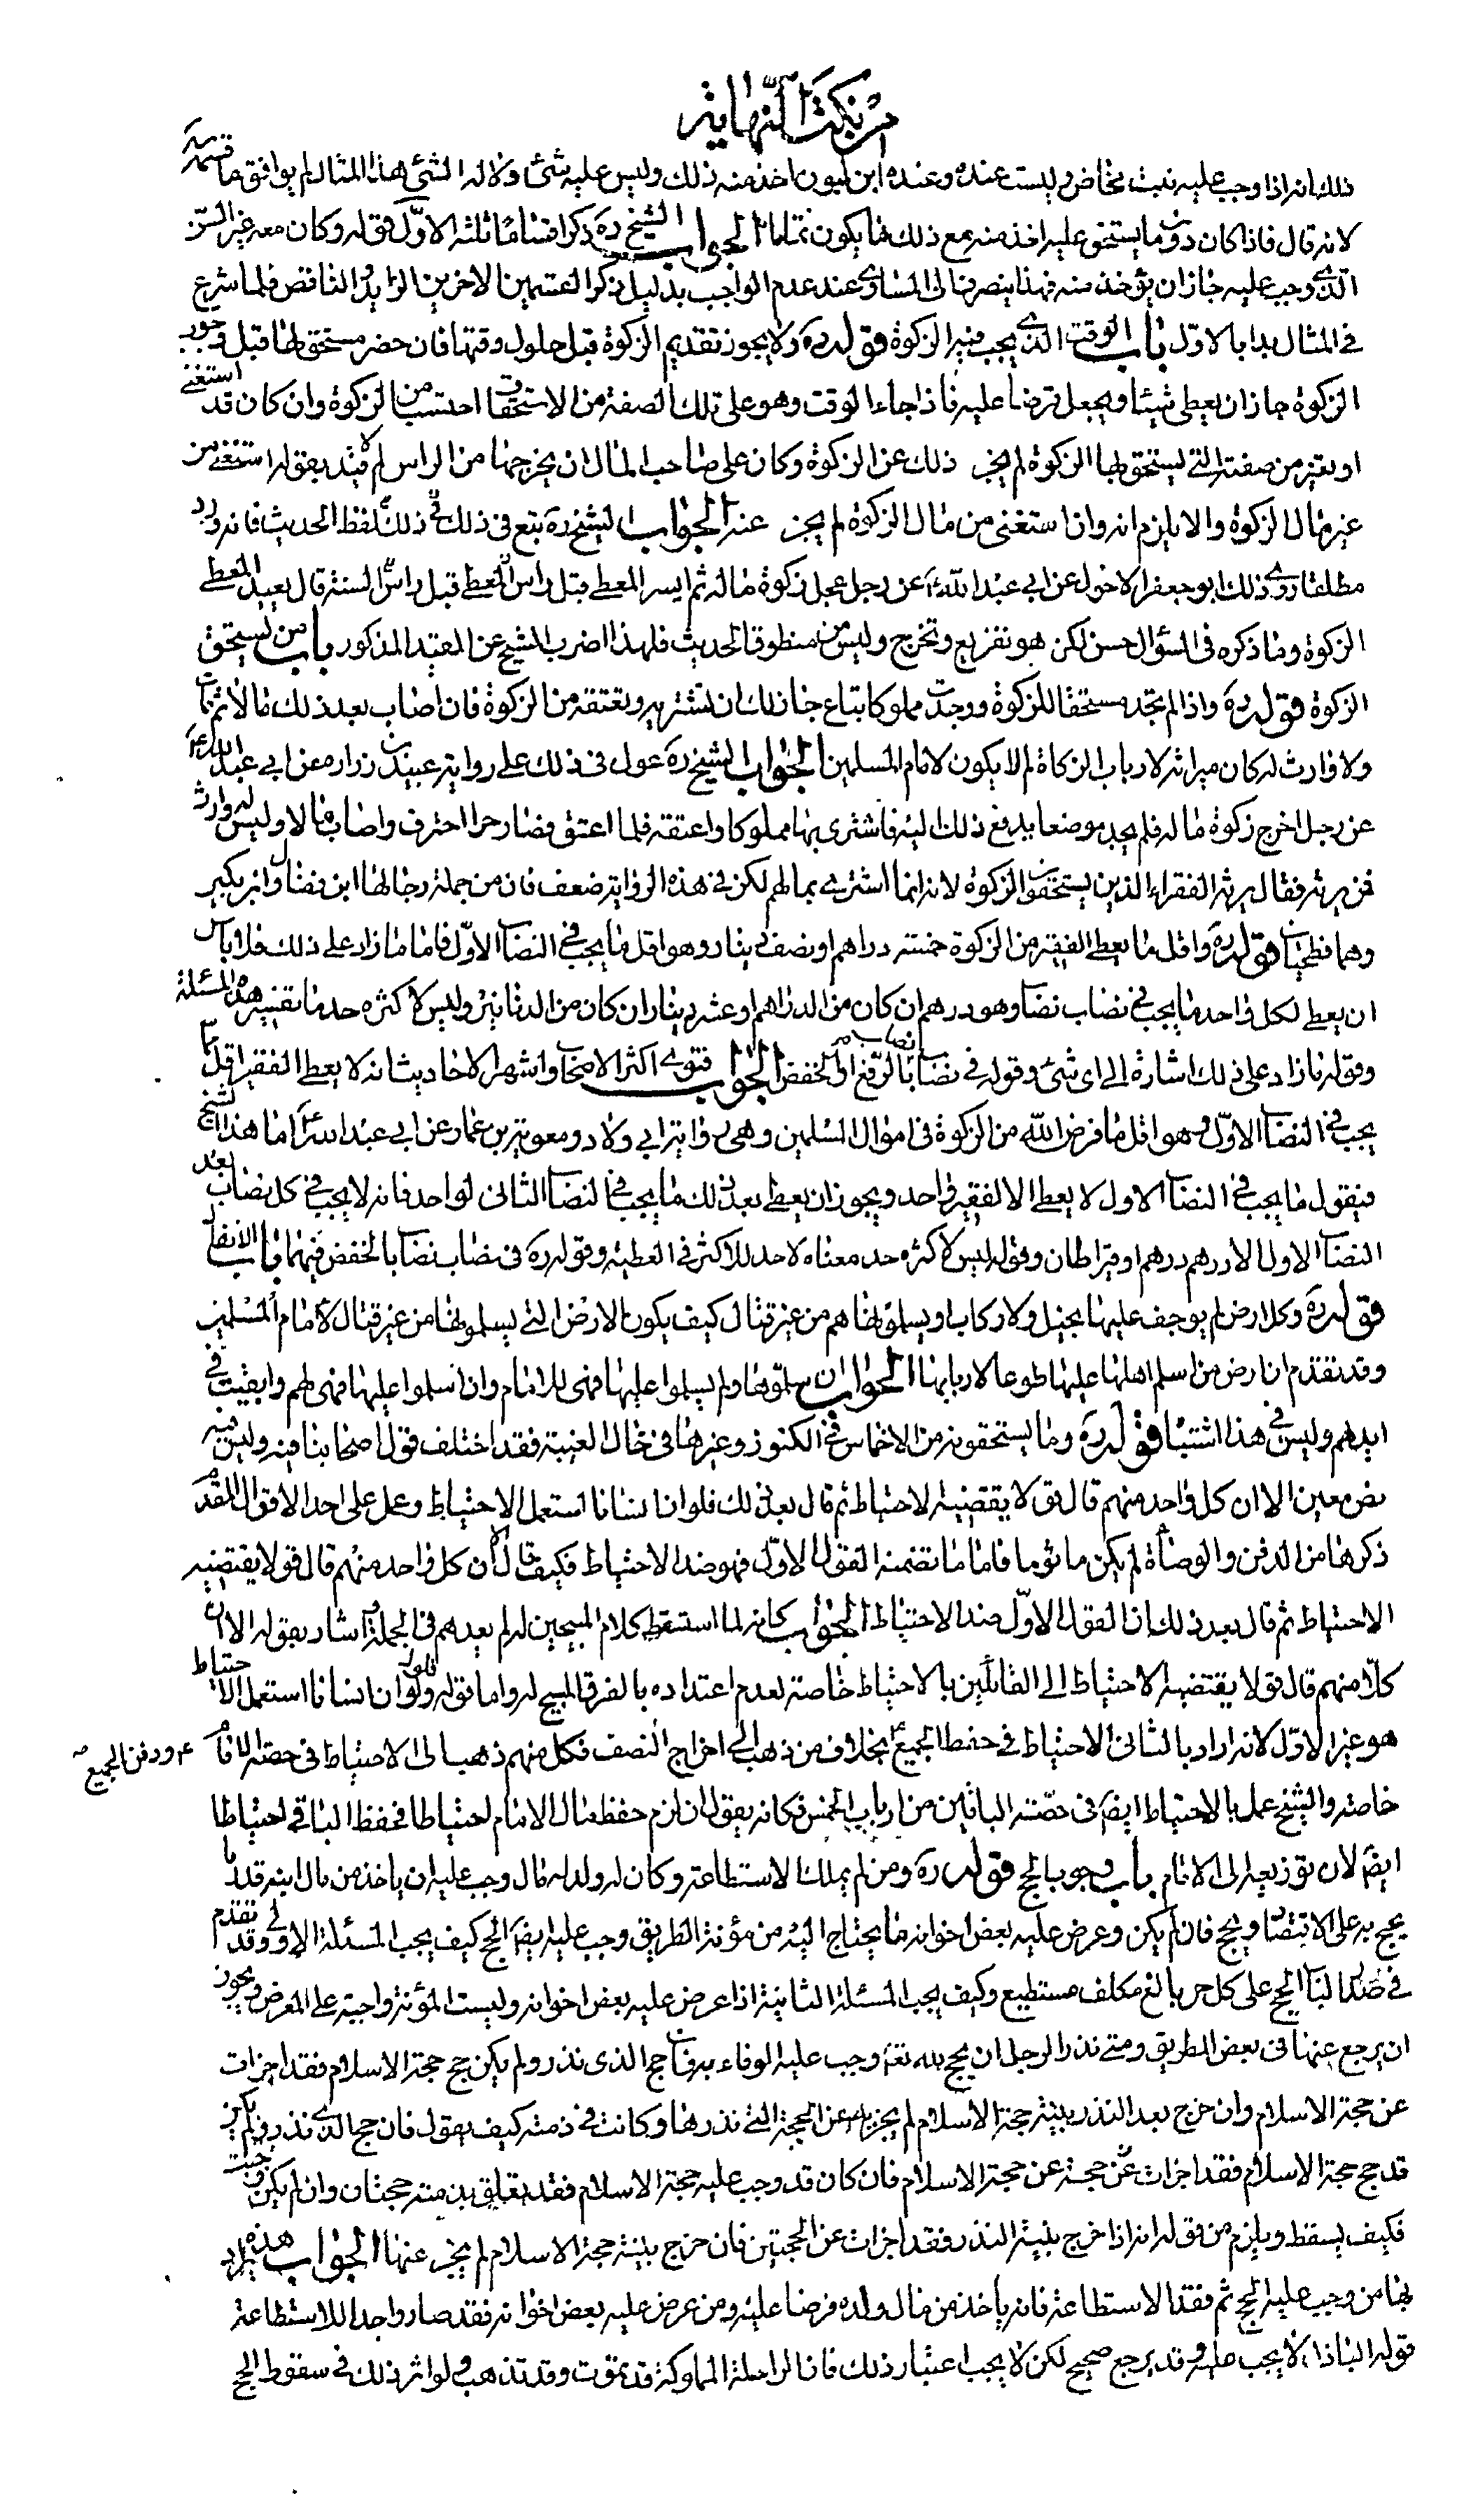 من نكت النهاية
ذلك انه اذا وجب عليه بنت مخاض وليست عنده وعنده ابن لبون اخذ منه ذلك وليس عليه شئ ولا له شئ هذا المثال لم يوافق ما قسمه
لانه قال فاذا كان دون ما يستحق عليه اخذ منه مع ذلك ما يكون تماما الجواب الشيخ ره ذكر اقساما ثلثة الاوّل قوله وكان معه غير السنّ
الذي وجب عليه جاز ان يؤخذ منه فهذا ينصرف الى المساوي عند عدم الواجب بدليل ذكر القسمين الاخرين الزايد والناقص فلما شرع
في المثال بدا بالاوّل باب الوقت الذي يجب فيه الزكوة قوله ره ولا يجوز تقديم الزكوة قبل حلول وقتها فان حضر مستحق لها قبل وجوب
الزكوة جاز ان يعطى شيئا ويجعل قرضا عليه فاذا جاء الوقت وهو على تلك الصفة من الاستحقاق احتسب من الزكوة وان كان قد استغنى
او تغير من صفته التي يستحق بها الزكوة لم يجز ذلك عن الزكوة وكان على صاحب المال ان يخرجها من الراس لم لا قيد بقوله استغنى من
غير مال الزكوة والا يلزم انه وان استغنى من مال الزكوة لم يجز عنه الجواب الشيخ ره تبع في ذلك لفظ الحديث فانه ورد
مطلقا روى ذلك ابو جعفر الاحول عن ابي عبد الله ع عن رجل عجل زكوة ماله ثم ايسر المعطى قبل راس السنة قال يعيد المعطي
الزكوة وما ذكره في السؤال حسن لكن هو تفريع وتخرج وليس من منطوق الحديث فلهذا اضرب الشيخ عن القيد المذكور باب من يستحق
الزكوة قوله ره واذا لم تجد مستحقا للزكوة ووجدت مملوكا يباع جاز لك ان تشتريه وتعتقه من الزكوة فان اصاب بعد ذلك مالا ثم مات
ولا وارث له كان ميراثه لارباب الزكاة لم لا يكون لامام المسلمين الجواب الشيخ ره عول في ذلك على رواية عبيد بن زرارة عن ابي عبد الله ع
عن رجل اخرج زكوة ماله فلم يجد موضعا يدفع ذلك اليه فاشترى بها مملوكا واعتقه فلما اعتق فصار حرا احترف واصاب مالا وليس له وارث
فمن يرثه فقال يرثه الفقراء الذين يستحقون الزكوة لانه انما اشترى بمالهم لكن في هذه الرواية ضعف فان من جملة رجالها ابن فضال وابن بكير
وهما فطحيان قوله ره واقل ما يعطى الفقير من الزكوة خمسة دراهم او نصف دينار وهو اقل ما يجب في النصاب الاوّل فاما ما زاد على ذلك فلا باس
ان يعطى لكل واحد ما يجب في نصاب نصاب وهو درهم ان كان من الدراهم او عشر دينار ان كان من الدنانير وليس لاكثره حد ما تفسير هذه المسئلة
وقوله ما زاد على ذلك اشارة الى اي شئ وقوله في نصاب نصاب بالرفع او الخفض الجواب فتوى اكثر الاصحاب واشهر الاحاديث انه لا يعطى الفقير اقل مما
يجب في النصاب الاوّل وهو اقل ما فرض الله من الزكوة في اموال المسلمين وهي رواية ابي ولاد ومعوية بن عمار عن ابي عبد الله ع اما هذا الشيخ
فيقول ما يجب في النصاب الاول لا يعطى الا لفقير واحد ويجوز ان يعطى بعد ذلك ما يجب في النصاب الثاني لواحد فانه لا يجب في كل نصاب بعد
النصاب الاول الا درهم درهم او قيراطان وقوله ليس لاكثره حد معناه لا حد للاكثر في العطية وقوله ره في نصاب نصاب بالخفض فيهما باب الانفال
قوله ره وكل ارض لم يوجف عليها بخيل ولا ركاب او يسلمونها هم من غير قتال كيف يكون الارض التي يسلمونها من غير قتال لامام المسلمين
وقد تقدم ان ارض من اسلم اهلها عليها طوعا لاربابها الجواب ان سلموها ولم يسلموا عليها فهي للامام وان اسلموا عليها فهي لهم وابقيت في
ايديهم وليس في هذا اشتباه قوله ره وما يستحقونه من الاخماس في الكنوز وغيرها في حال الغيبة فقد اختلف قول اصحابنا فيه وليس فيه
نص معين الا ان كل واحد منهم قال قولا يقتضيه الاحتياط ثم قال بعد ذلك فلو ان انسانا استعمل الاحتياط وعمل على احد الاقوال المقدم
ذكرها من الدفن والوصاة لم يكن ماثوما فاما ما تضمنه القول الاوّل فهو ضد الاحتياط فكيف قال الا ان كل واحد منهم قال قولا يقتضيه
الاحتياط ثم قال بعد ذلك ان القول الاوّل ضد الاحتياط الجواب كانه لما استسقط كلام المبيحين له لم يعدهم في الجملة واشار بقوله الا ان
كلا منهم قال قولا يقتضيه الاحتياط الى القائلين بالاحتياط خاصة لعدم اعتداده بالفرق المبيح له واما قوله ولو ان انسانا استعمل الاحتياط
هو غير الاوّل لانه اراد بالثاني الاحتياط في حفظ الجميع بخلاف من ذهب الى اخراج النصف فكل منهم ذهب الى الاحتياط في حصة الامام
ودفن الجميع
خاصة والشيخ عمل بالاحتياط ايضا في حصة الباقين من ارباب الخمس فكانه يقول ان لزم حفظ مال الامام احتياطا فحفظ الباقي احتياطا
ايضا لان توزيعه الى الامام باب وجوب الحج قوله ره ومن لم يملك الاستطاعة وكان له ولد له مال وجب عليه ان ياخذ من مال ابنه قدر ما
يحج به على الاقتصاد ويحج فان لم يكن وعرض عليه بعض اخوانه ما يحتاج اليه من مؤنة الطريق وجب عليه ايضا الحج كيف يجب المسئلة الاولى وقد تقدم
في صدر الباب الحج على كل حر بالغ مكلف مستطيع وكيف يجب المسئلة الثانية اذا عرض عليه بعض اخوانه وليست المؤنة واجبة على المعرض ويجوز
ان يرجع عنها في بعض الطريق ومتى نذر الرجل ان يحج لله تعالى وجب عليه الوفاء به فان حج الذي نذر ولم يكن حج حجة الاسلام فقد اجزات
عن حجة الاسلام وان خرج بعد النذر بنية حجة الاسلام لم يجزيه عن الحجة التي نذرها وكانت في ذمته كيف يقول فان حج الذي نذر ولم يكن
قد حج حجة الاسلام فقد اجزات عن حجة عن حجة الاسلام فان كان قد وجب عليه حجة الاسلام فقد تعلق بذمته حجتان وان لم يكن وجبت
فكيف يسقط ويلزم من قوله انه اذا خرج بنية النذر فقد اجزات عن الحجتين فان خرج بنية حجة الاسلام لم يجز عنها الجواب هذه يراد
بها من وجب عليه الحج ثم فقد الاستطاعة فانه ياخذ من مال ولده فرضا عليه ومن عرض عليه بعض اخوانه فقد صار واجدا للاستطاعة
قوله الباذل لا يجب عليه وقد يرجع صحيح لكن لا يجب اعتبار ذلك فان الراحلة المملوكة قد تموت وقد تذهب ولو اثر ذلك في سقوط الحج